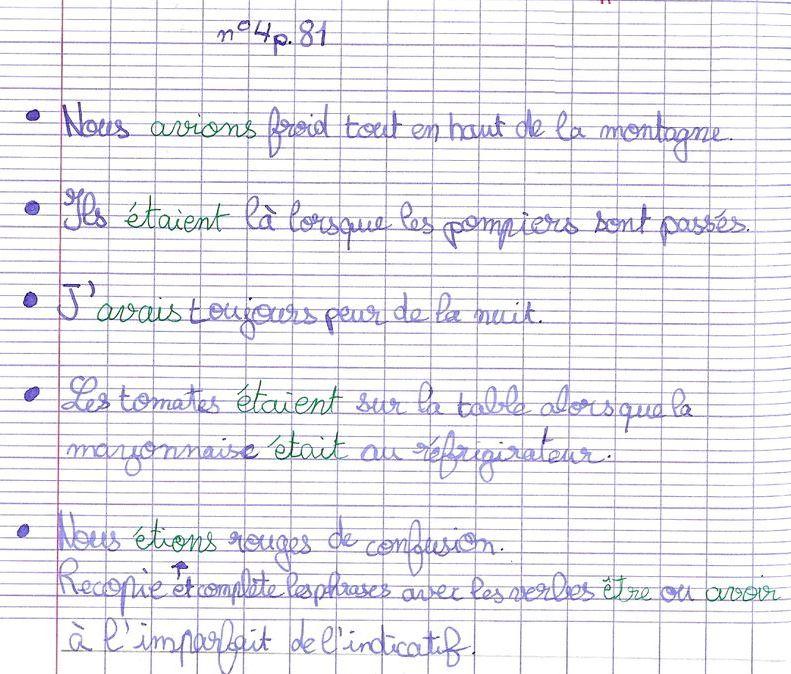 n°4 p.81
• Nous avions froid tout en haut de la montagne.
• Ils étaient là lorsque les pompiers sont passés.
• J'avais toujours peur de la nuit.
• Les tomates étaient sur la table alors que la
mayonnaise était au réfrigirateur.
• Nous étions rouges de confusion.
Recopie et complète les phrases avec les verbes être ou avoir
à l'imparfait de l'indicatif.